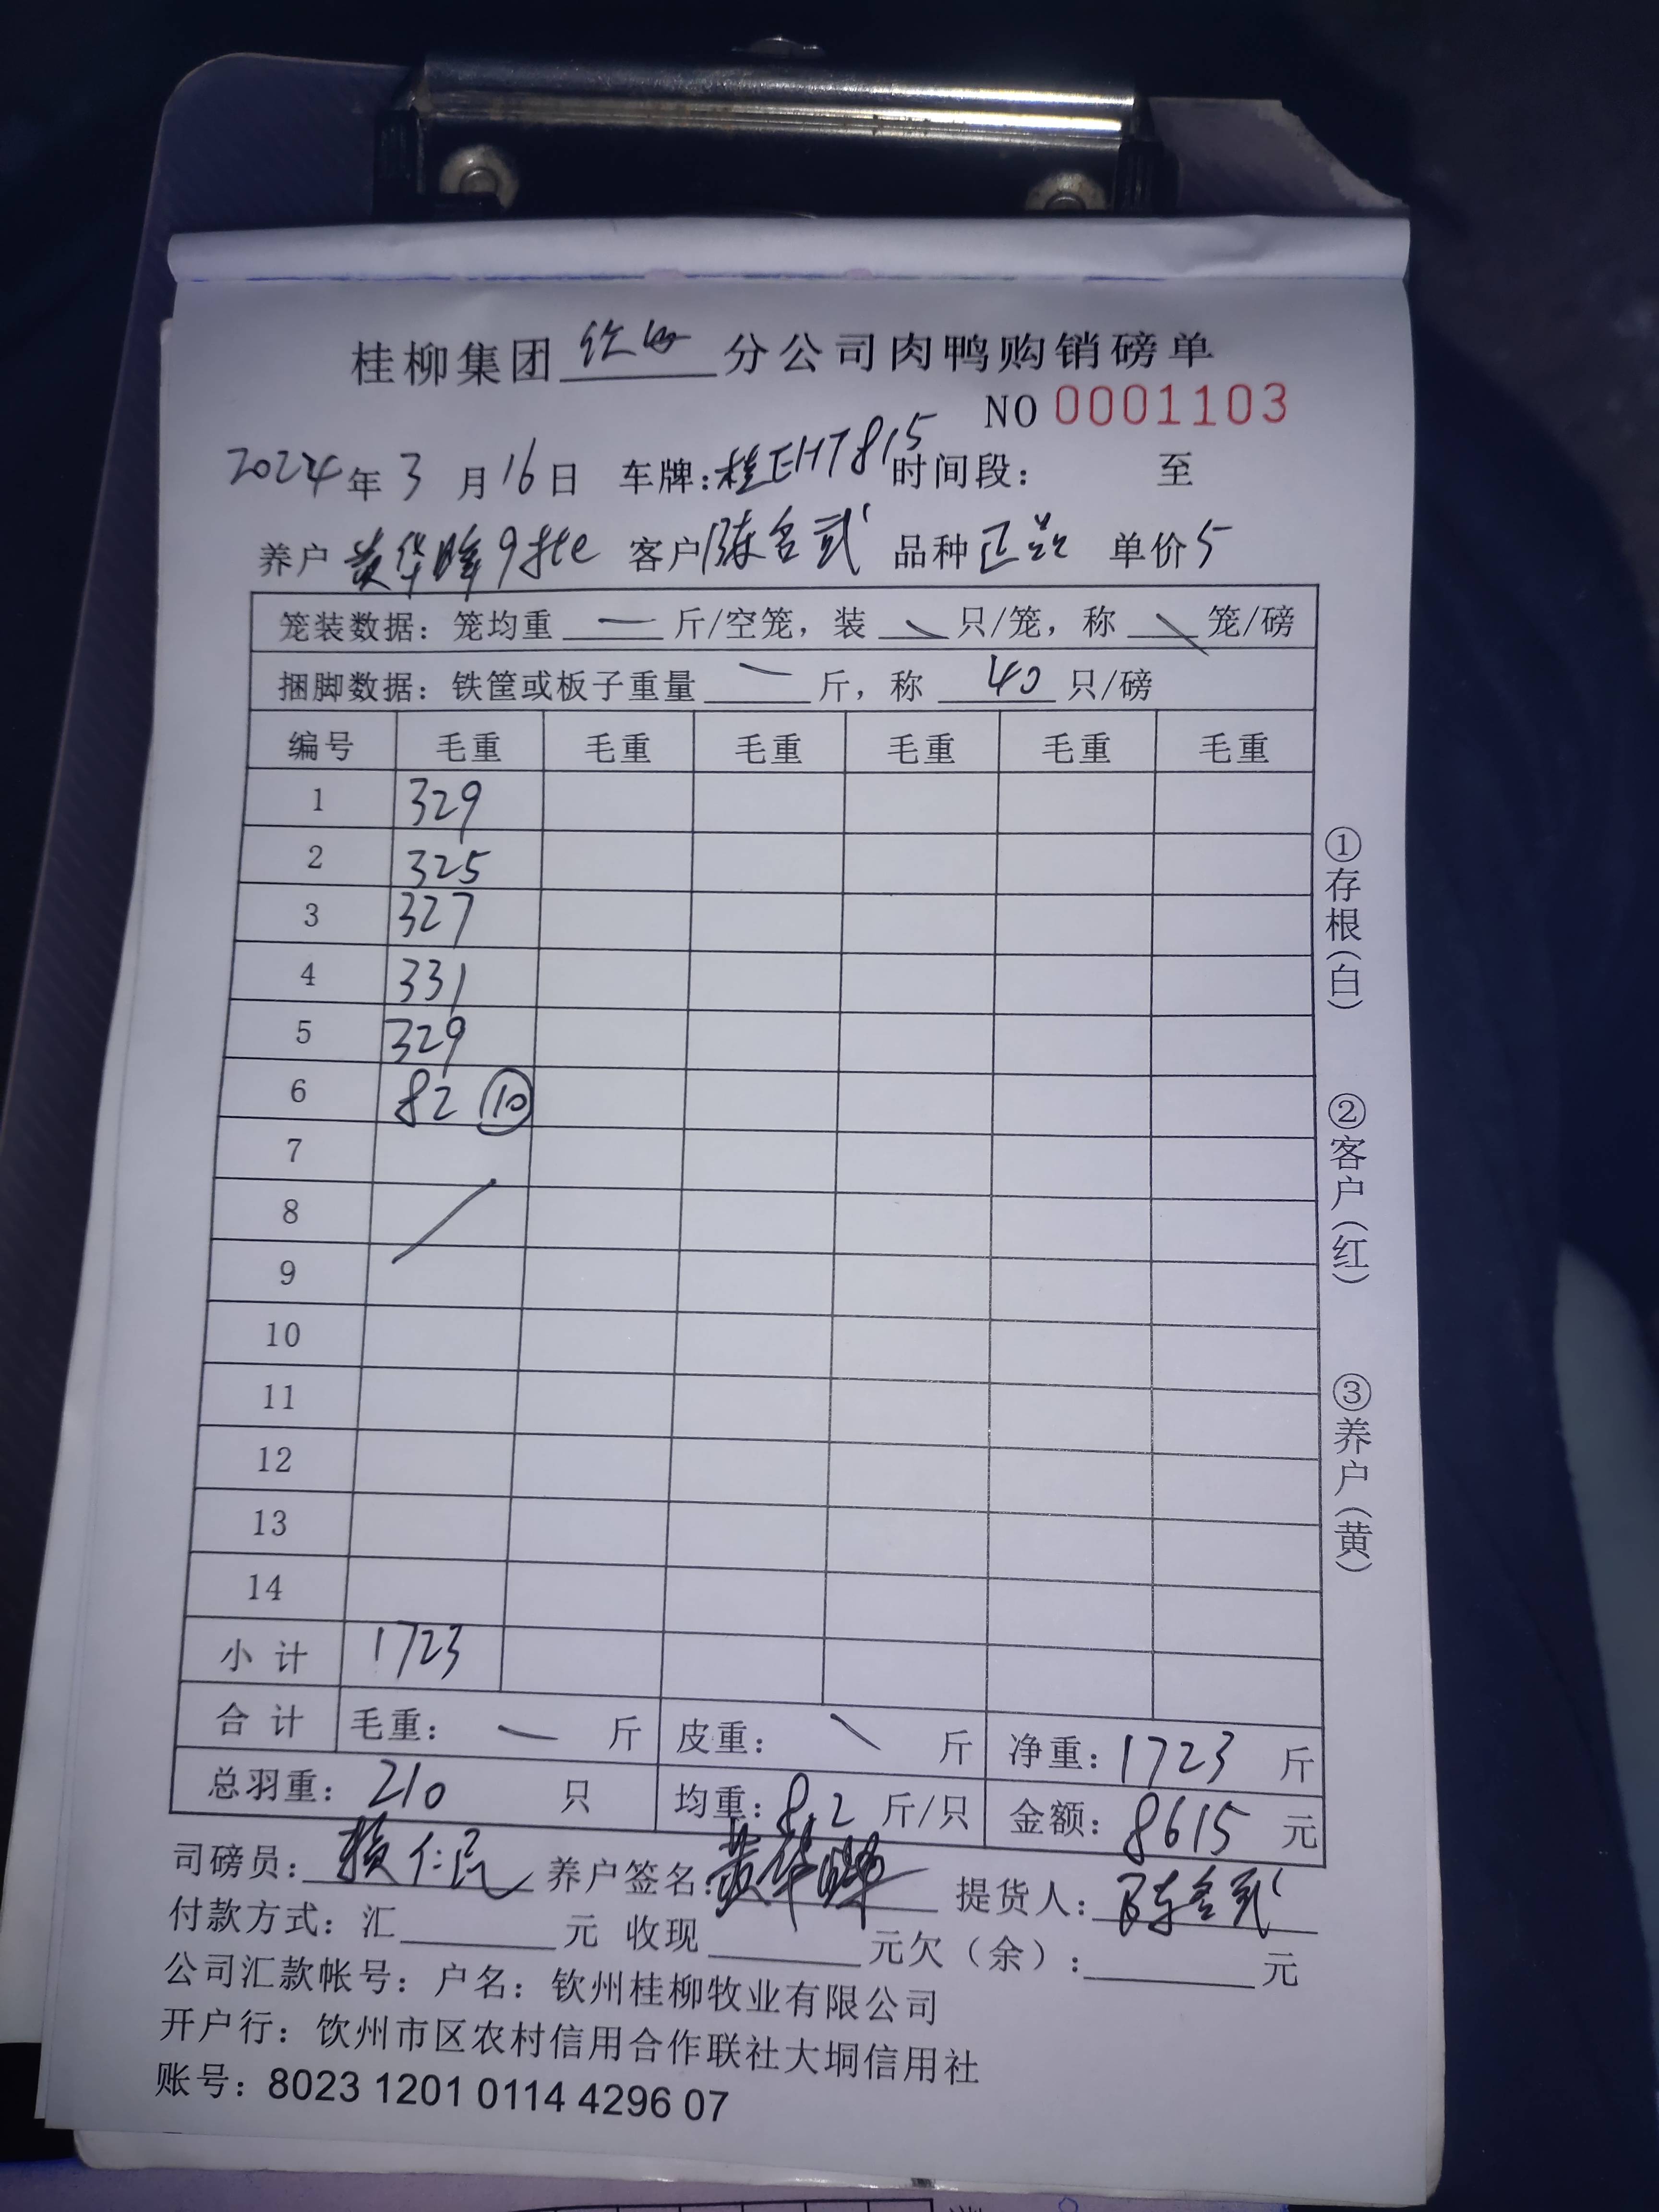 桂柳集团 钦州 分公司肉鸭购销磅单
NO 0001103
2024年3月16日 车牌:桂EHT815 时间段: 至
养户 黄华晖9批 客户 陈名武 品种 正品 单价5
笼装数据:笼均重 — 斤/空笼,装 \ 只/笼,称 \ 笼/磅
捆脚数据:铁筐或板子重量 — 斤,称 40 只/磅
编号 毛重 毛重 毛重 毛重 毛重 毛重
1 329
2 325
3 327
4 331
5 329
6 82 ⑩
7
8
9
10
11
12
13
14
小计 1723
合计 毛重: — 斤 皮重: \ 斤 净重:1723 斤
总羽重:210 只 均重:8.2 斤/只 金额:8615 元
司磅员:赖仁民 养户签名:黄华晖 提货人:陈名武
付款方式:汇 元 收现 元欠(余): 元
公司汇款帐号:户名:钦州桂柳牧业有限公司
开户行:钦州市区农村信用合作联社大垌信用社
账号:8023 1201 0114 4296 07
①存根(白)
②客户(红)
③养户(黄)